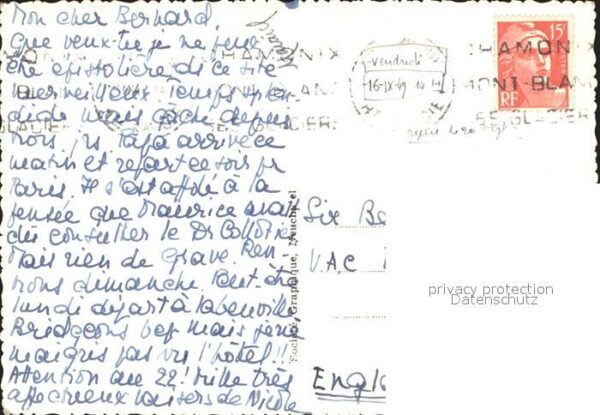 Mon cher Bernard,
Que veux-tu je ne peux
être épistolière de ce site
merveilleux temps splen
dide mais gâché depuis
trois jrs Papa arrive ce
matin et repart ce soir pr
Paris. Il s'est affolé à la
pensée que Maurice avait
dû consulter le Dr
Mais rien de Grave. Ren-
trons dimanche. Peut-être
lundi départ à
Bridgeons bep mais j'en
maigris pas vu l'hôtel!!
Attention au 22! Mille très
affectueux baisers de Nicole
CHAMONIX
MONT-BLANC
SES GLACIERS
Vendredi
16-IX-49
15F
POSTES
RF
CHAMONIX
MONT-BLANC
GLACIERS
Société Graphique, Neuchâtel
Six
V.A.C
Engl
privacy protection
Datenschutz